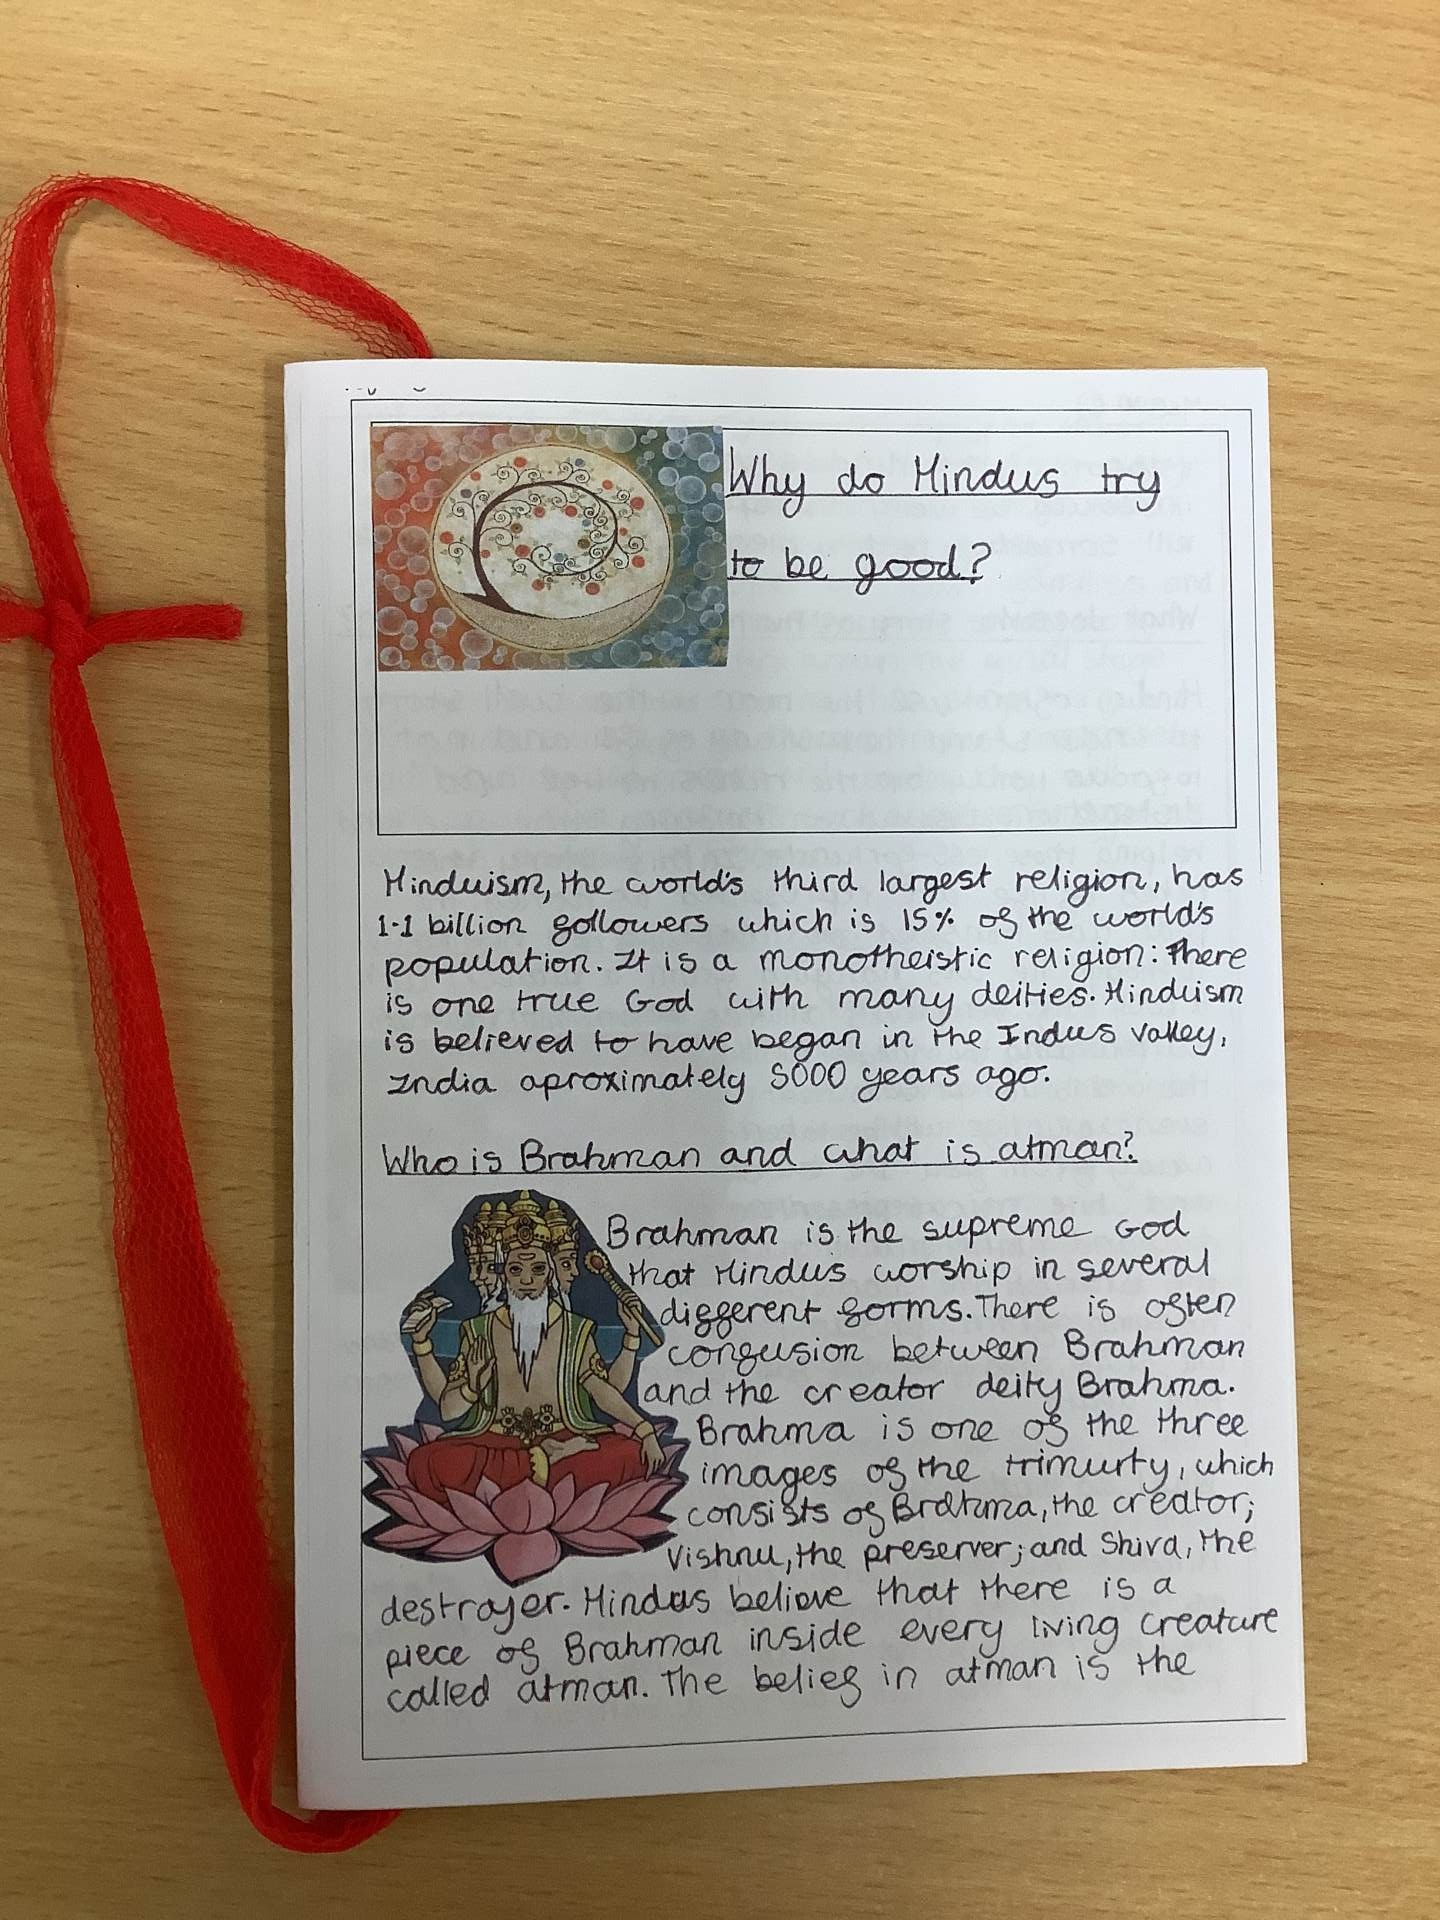 Why do Hindus try
to be good?
Hinduism, the world's third largest religion, has
1.1 billion followers which is 15% of the world's
population. It is a monotheistic religion: There
is one true God with many deities. Hinduism
is believed to have began in the Indus Valley,
India aproximately 5000 years ago.
Who is Brahman and what is atman?
Brahman is the supreme God
that Hindus worship in several
different forms. There is often
confusion between Brahman
and the creator deity Brahma.
Brahma is one of the three
images of the trimurty, which
consists of Brahma, the creator;
Vishnu, the preserver; and Shiva, the
destroyer. Hindus believe that there is a
piece of Brahman inside every living creature
called atman. The belief in atman is the